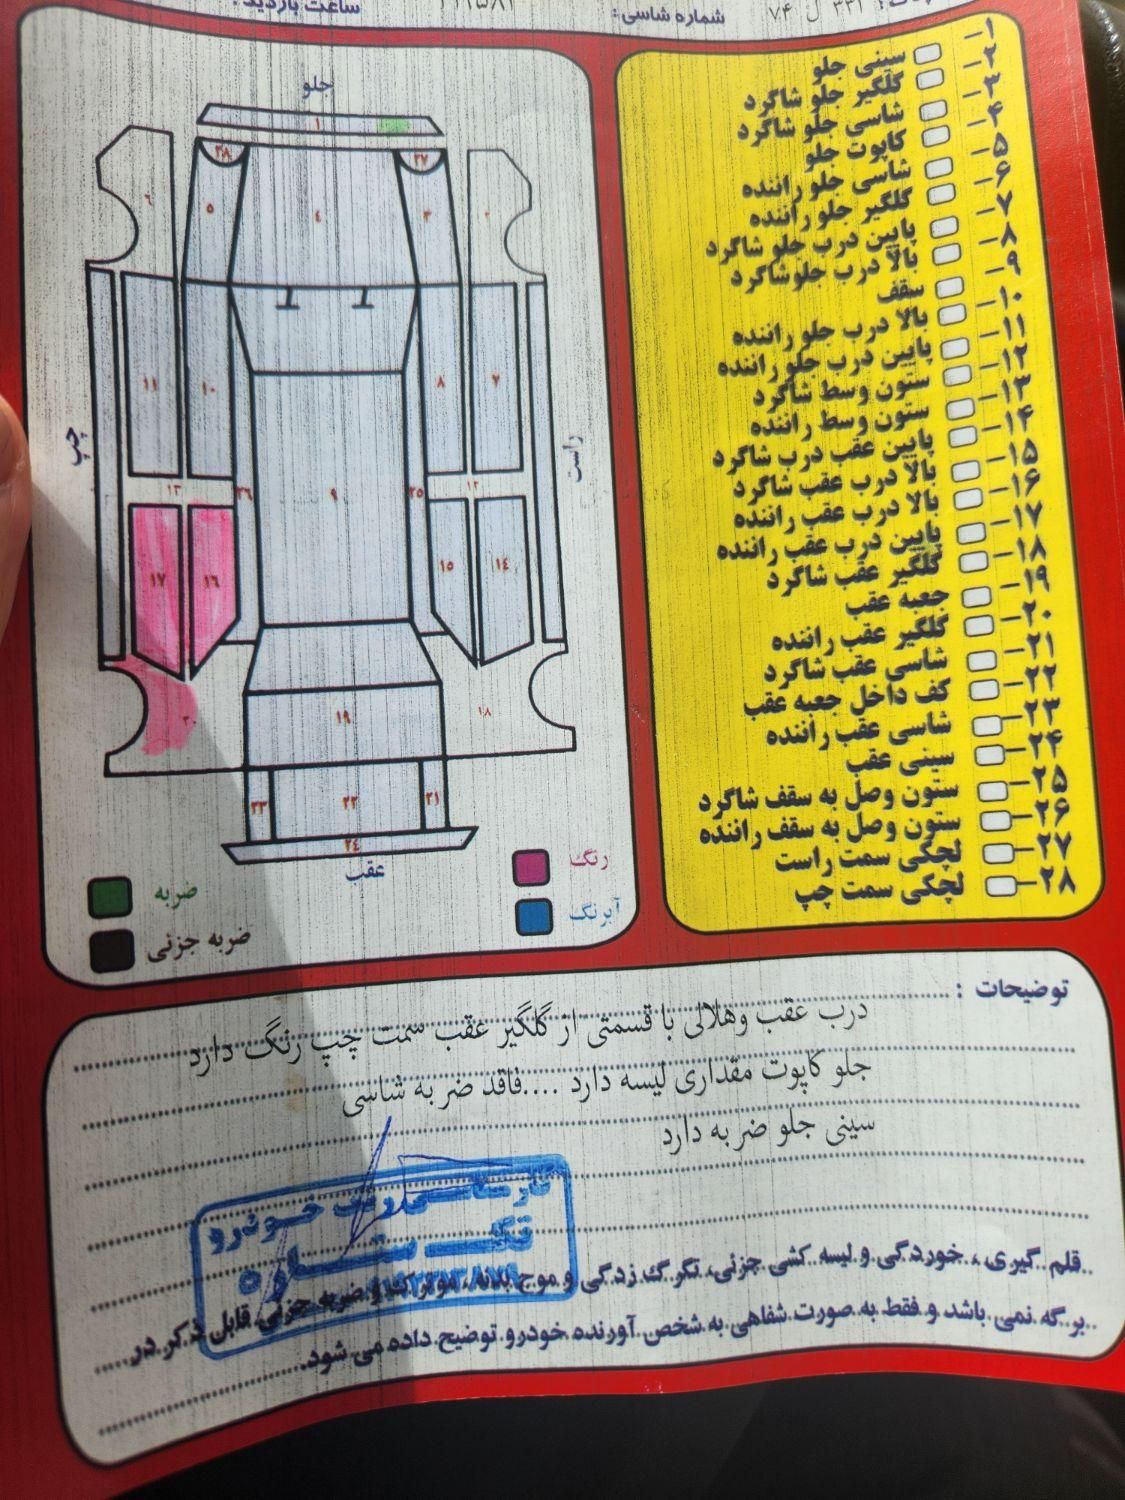 ساعت بازدید :
شماره شاسی :
۳۳۱ ل ۷۴
جلو
چپ
راست
عقب
۱
۲
۳
۴
۵
۶
۷
۸
۹
۱۰
۱۱
۱۲
۱۳
۱۴
۱۵
۱۶
۱۷
۱۸
۱۹
۲۰
۲۱
۲۲
۲۳
۲۴
۲۵
۲۶
۲۷
۲۸
ضربه
ضربه جزئی
رنگ
آبرنگ
۱- سینی جلو
۲- گلگیر جلو شاگرد
۳- شاسی جلو شاگرد
۴- کاپوت جلو
۵- شاسی جلو راننده
۶- گلگیر جلو راننده
۷- پایین درب جلو شاگرد
۸- بالا درب جلوشاگرد
۹- سقف
۱۰- بالا درب جلو راننده
۱۱- پایین درب جلو راننده
۱۲- ستون وسط شاگرد
۱۳- ستون وسط راننده
۱۴- پایین عقب درب شاگرد
۱۵- بالا درب عقب شاگرد
۱۶- بالا درب عقب راننده
۱۷- پایین درب عقب راننده
۱۸- گلگیر عقب شاگرد
۱۹- جعبه عقب
۲۰- گلگیر عقب راننده
۲۱- شاسی عقب شاگرد
۲۲- کف داخل جعبه عقب
۲۳- شاسی عقب راننده
۲۴- سینی عقب
۲۵- ستون وصل به سقف شاگرد
۲۶- ستون وصل به سقف راننده
۲۷- لچکی سمت راست
۲۸- لچکی سمت چپ
توضیحات :
درب عقب وهلالی با قسمتی از گلگیر عقب سمت چپ رنگ دارد
جلو کاپوت مقداری لیسه دارد ....فاقد ضربه شاسی
سینی جلو ضربه دارد
کارشناسی رنگ خودرو
تک ستاره
قلم گیری ، خوردگی و لیسه کشی جزئی، تگرگ زدگی و موج بدنه، مونتاژ و ضربه جزئی قابل ذکر در
برگه نمی باشد و فقط به صورت شفاهی به شخص آورنده خودرو توضیح داده می شود.